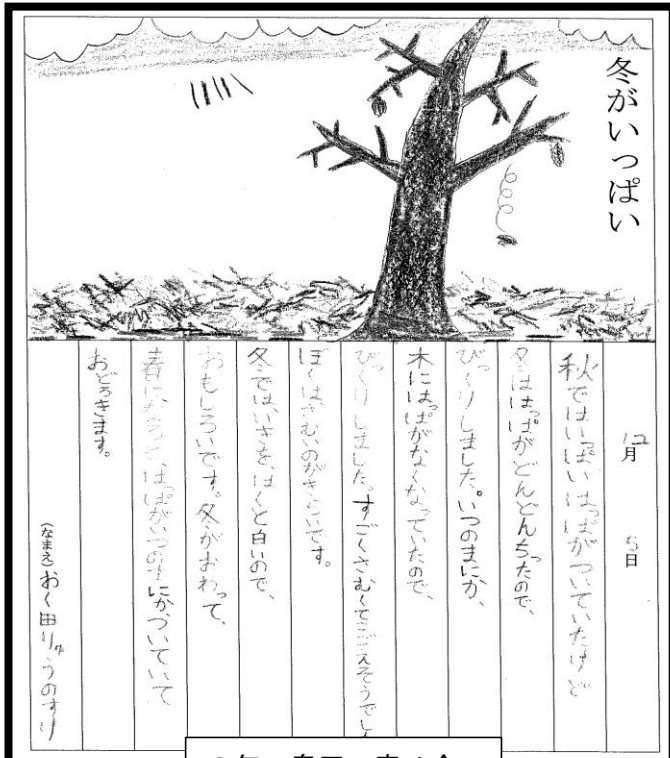 冬がいっぱい
12月 5日
秋ではいっぱいはっぱがついていたけど
冬ははっぱがどんどんちったので、
びっくりしました。いつのまにか、
木にはっぱがなくなっていたので、
びっくりしました。すごくさむくてこごえそうでした
ぼくはさむいのがきらいです。
冬では、いきを、はくと白いので、
おもしろいです。冬がおわって、
春になると、はっぱがいつのまにか、ついていて
おどろきます。
(なまえ)おく田りゅうのすけ